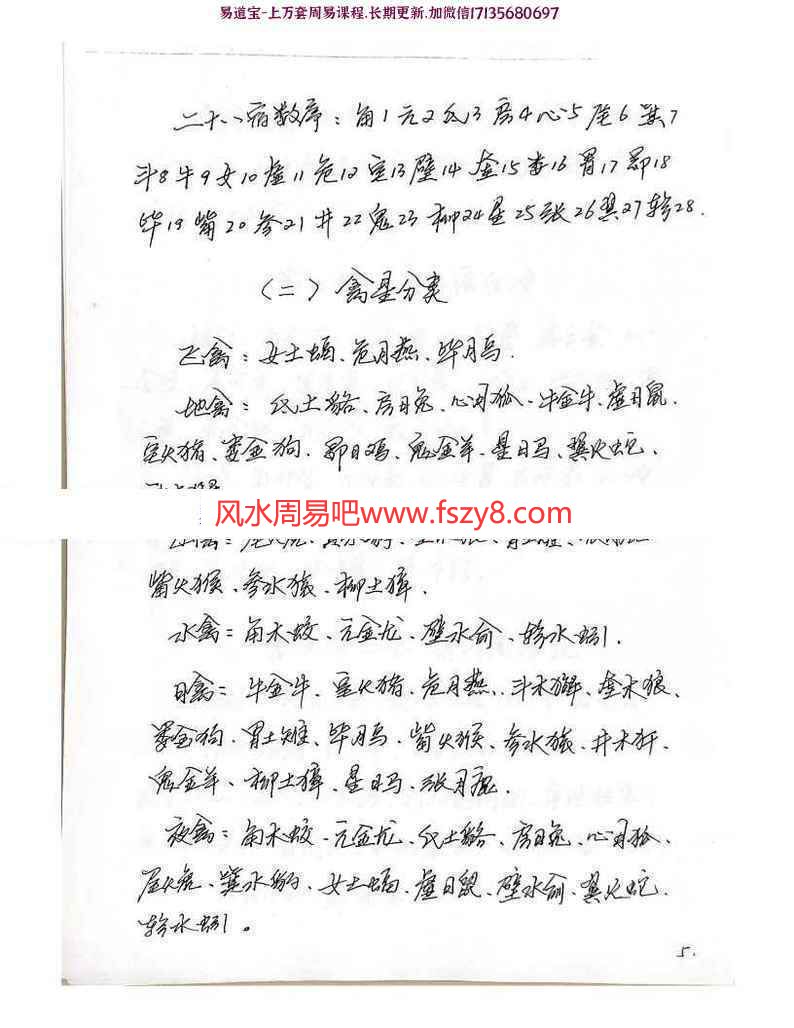 易道宝-上万套周易课程.长期更新.加微信17135680697
二十八宿数序：角1 亢2 氐3 房4 心5 尾6 箕7
斗8 牛9 女10 虚11 危12 室13 壁14 奎15 娄16 胃17 昴18
毕19 觜20 参21 井22 鬼23 柳24 星25 张26 翼27 轸28.
（二）禽星分类
飞禽：女土蝠、危月燕、毕月乌.
地禽：氐土貉、房日兔、心月狐、牛金牛、虚日鼠.
室火猪、娄金狗、昴日鸡、鬼金羊、星日马、翼火蛇、
风水周易吧www.fszy8.com
觜火猴、参水猿、柳土獐.
水禽=角木蛟、亢金龙、壁水俞、轸水蚓.
日禽=牛金牛、室火猪、危月燕、斗木獬、奎木狼、
娄金狗、胃土雉、毕月乌、觜火猴、参水猿、井木犴、
鬼金羊、柳土獐、星日马、张月鹿.
夜禽=角木蛟、亢金龙、氐土貉、房日兔、心月狐、
尾火虎、箕水豹、女土蝠、虚日鼠、壁水俞、翼火蛇.
轸水蚓。
5.